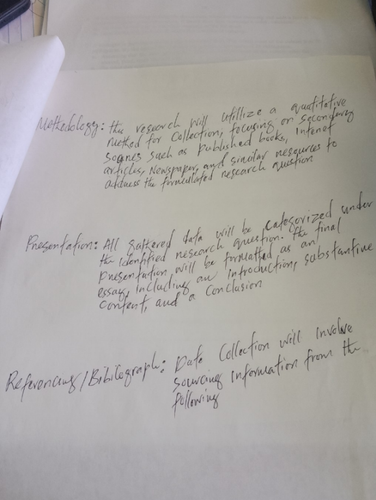 Methodology: the research will utilize a qualitative
method for Collection, focusing on secondary
sources such as published books, Internet
articles, Newspaper, and similar resources to
address the formulated research question
Presentation: All gathered data will be categorized under
the identified research question. the final
presentation will be formatted as an
essay, including an introduction, substantive
content, and a conclusion
Referencing/Bibliography: Data Collection will involve
sourcing information from the
following